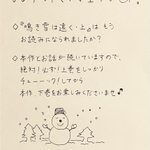 ◇『鳴き雪は遠く・上』は もう
お読みになられましたか？
◇本作とお話が続いていますので、
絶対！必ず！上巻をしっかり
チェーーック！してから
本作、下巻をお楽しみくださいませ♪